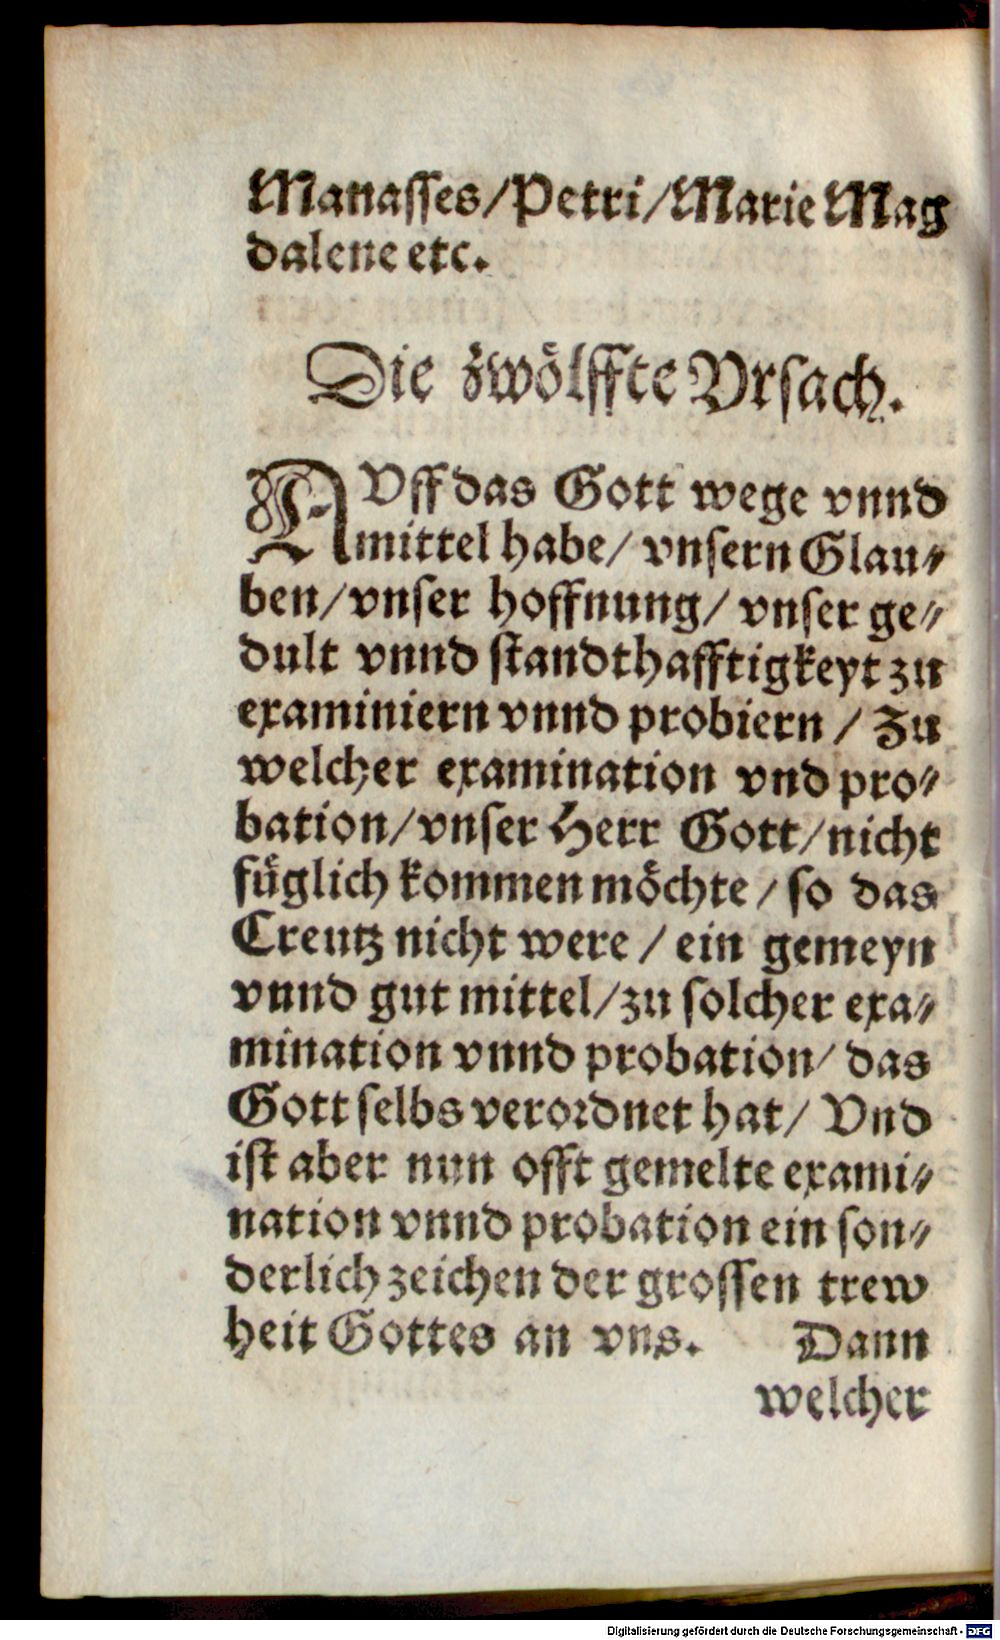 Manasses/Petri/Marie Mag
dalene etc.
Die zwölffte Vrsach.
AVff das Gott wege vnnd
mittel habe/ vnsern Glau⸗
ben/vnser hoffnung/ vnser ge⸗
dult vnnd standthafftigkeyt zu
examiniern vnnd probiern / Zu
welcher examination vnd pro⸗
bation/vnser Herr Gott/nicht
füglich kommen möchte / so das
Creutz nicht were / ein gemeyn
vnnd gut mittel/zu solcher exa⸗
mination vnnd probation/ das
Gott selbs verordnet hat/ Vnd
ist aber nun offt gemelte exami⸗
nation vnnd probation ein son⸗
derlich zeichen der grossen trew
heit Gottes an vns. Dann
welcher
Digitalisierung gefördert durch die Deutsche Forschungsgemeinschaft - DFG